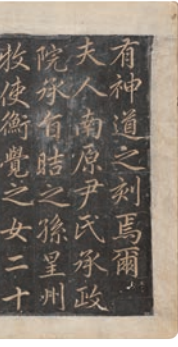 有神道之刻焉爾
夫人南原尹氏承政
院承旨晧之孫星州
牧使衡覺之女二十